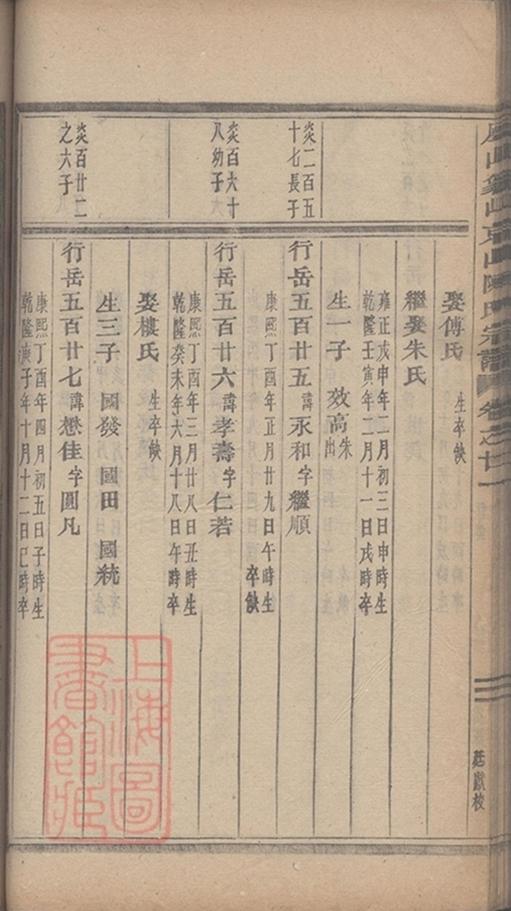 陳氏宗譜
卷之廿一
娶傅氏
生卒缺
繼娶朱氏
雍正戊申年二月初三日申時生
乾隆壬寅年二月十一日戌時卒
生一子 效高
朱出
炎二百五十七長子
行岳五百廿五 諱永和字繼順
康熙丁酉年正月廿九日午時生
卒缺
炎百六十八幼子
行岳五百廿六 諱孝壽字仁若
康熙丁酉年三月廿八日丑時生
乾隆癸未年六月十八日午時卒
娶樓氏
生卒缺
生三子 國發 國田 國統
炎百廿二之六子
行岳五百廿七 諱懋佳字圓凡
康熙丁酉年四月初五日子時生
乾隆庚子年十月十二日巳時卒
上海圖
書館藏